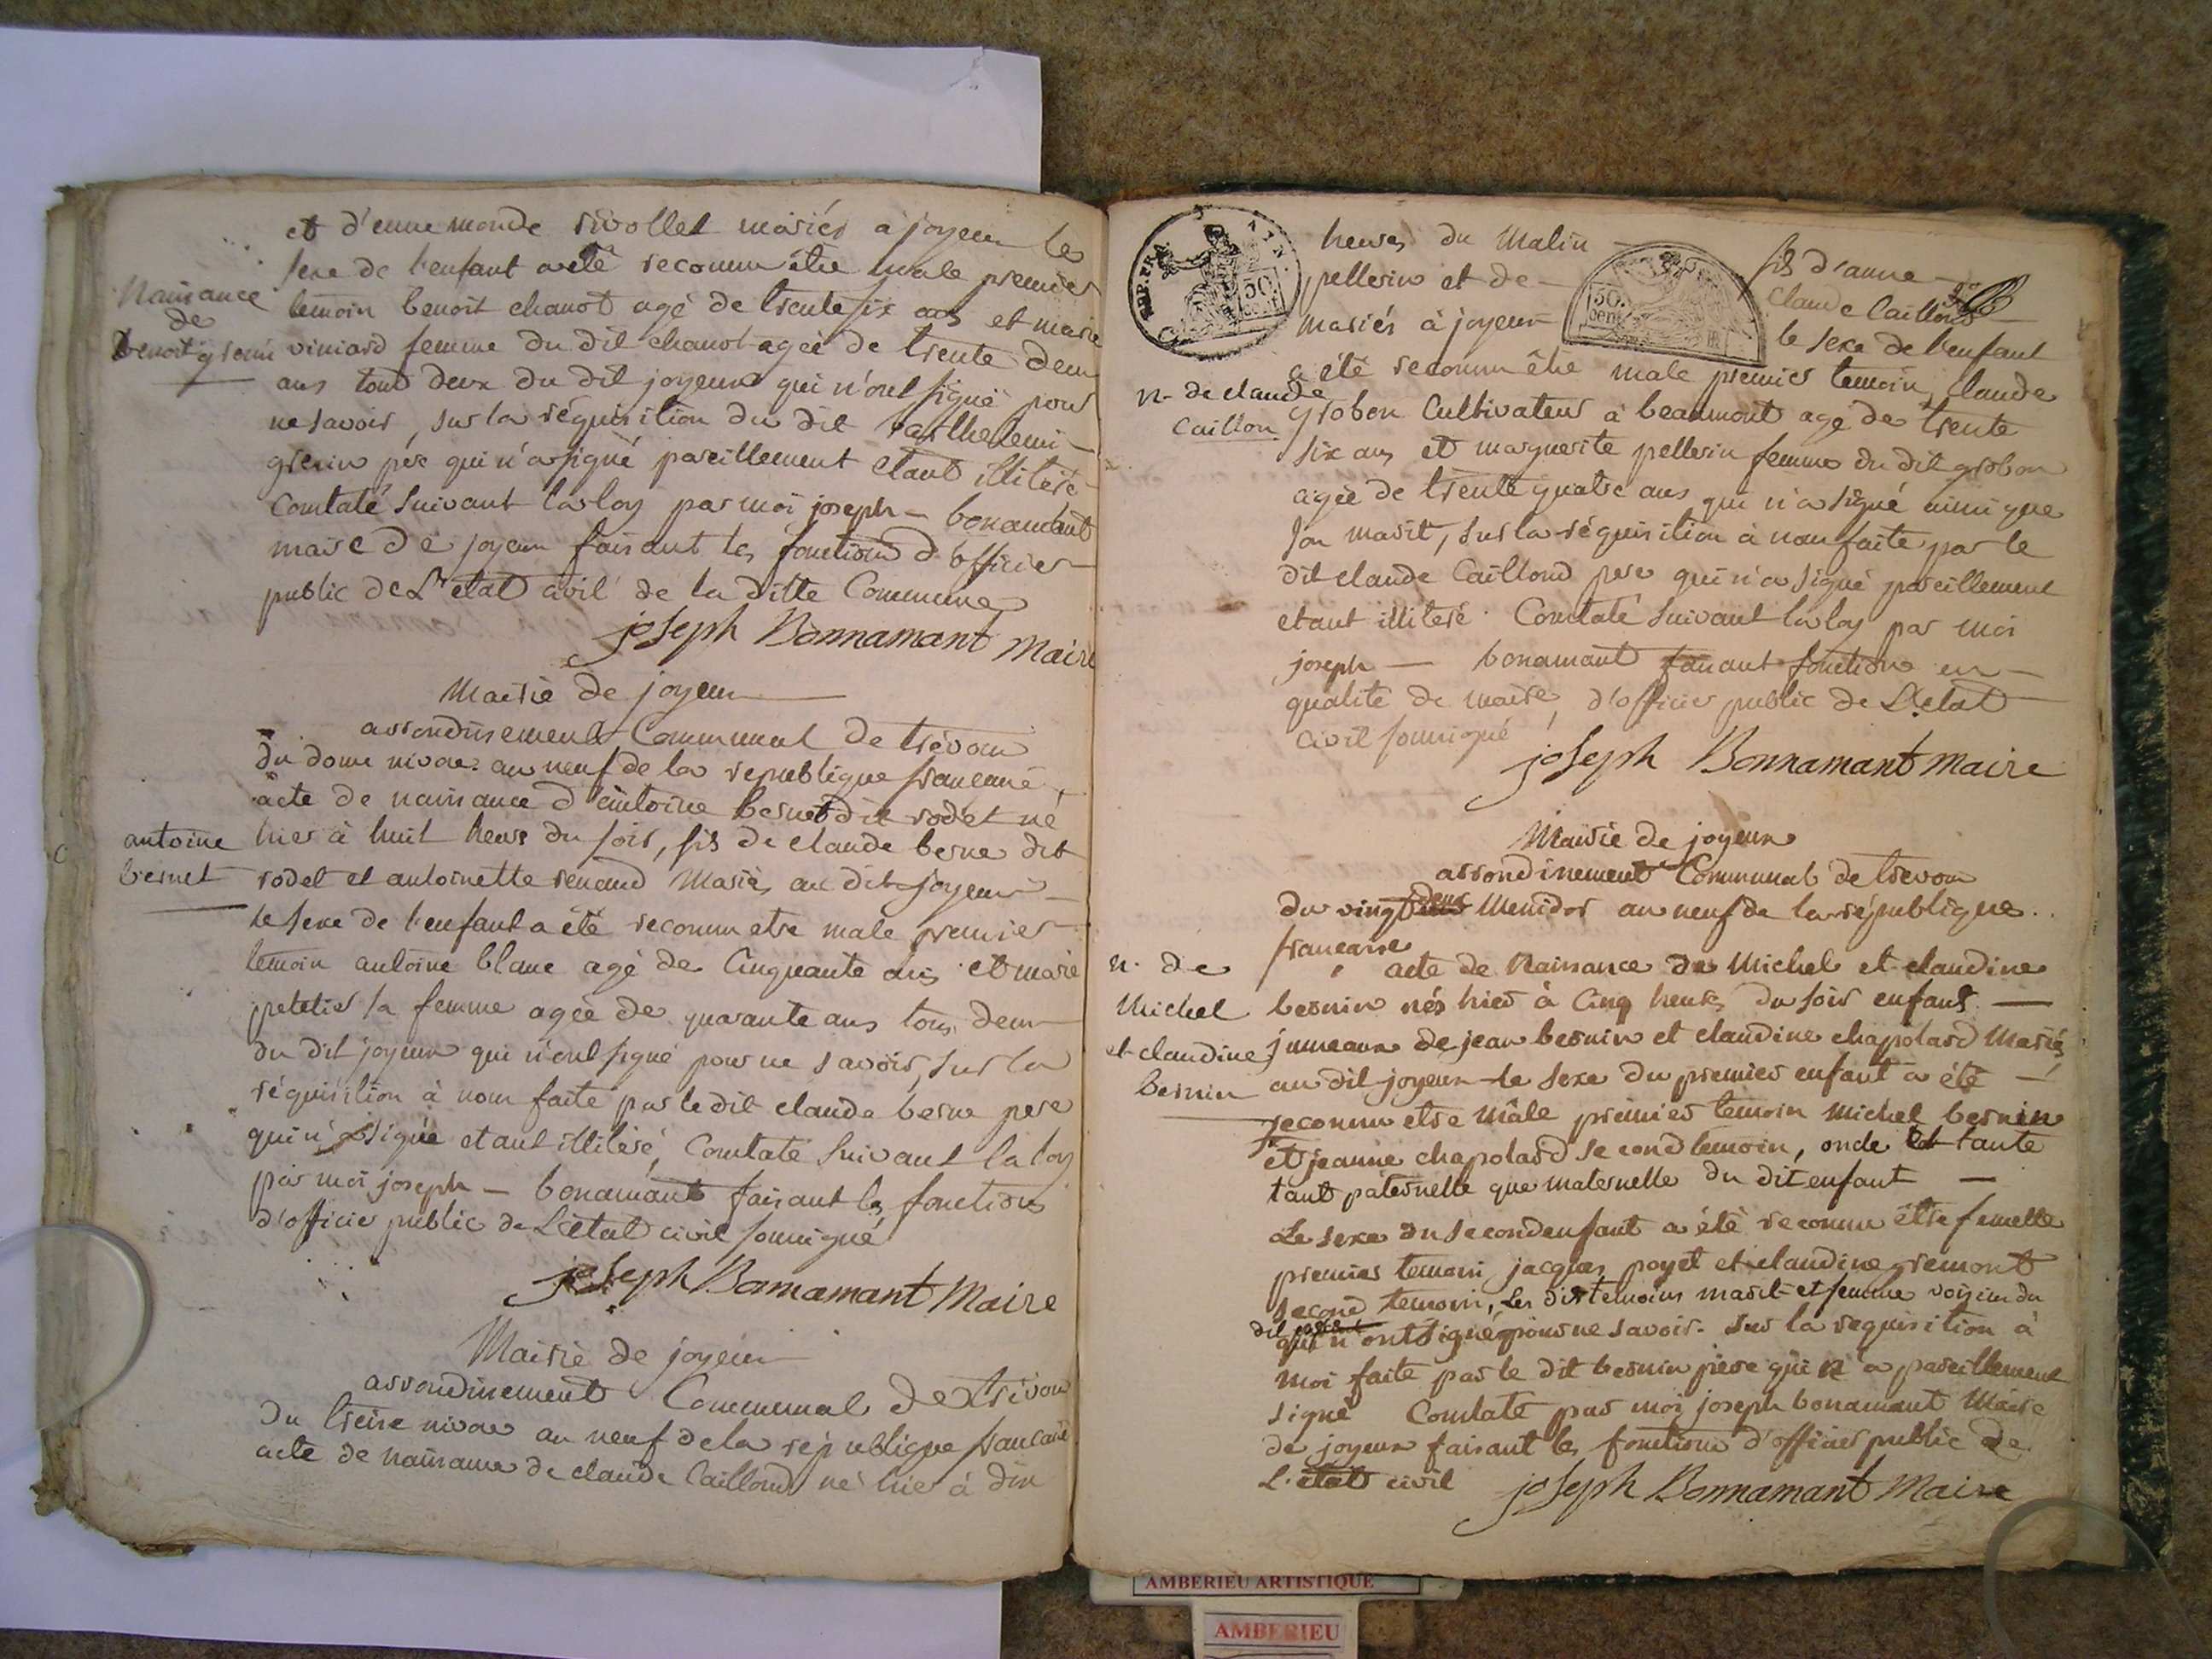 et d'ennemonde rivollet mariés a joyeux le
sexe de l'enfant a eté reconnu être male premier
Naissance
de
benoit grenin
temoin benoit chanot agé de trente six ans et marie
viniard femme du dit chanot agée de trente deux
ans tous deux du dit joyeux qui n'ont signé pour
ne savoir, sur la réquisition du dit barthelemi
grenin pére qui n'a signé pareillement etant illiteré
Constaté suivant la loy par moi joseph - bonamant
maire de joyeux faisant les fonctions d'officier
public de L'état civil de la ditte Commune
joseph Bonnamant Maire
Mairie de joyeux
arrondissement Communal de trévoux
du douze nivose an neuf de la republique française
acte de naissance d'antoine bernet dit rodet né
antoine
bernet
hier à huit heure du soir, fils de claude berne dit
rodet et antoinette renaud Mariés au dit joyeux
le sexe de l'enfant a été reconnu etre male premier
temoin antoine blanc agé de Cinquante ans et marie
petetier sa femme agée de quarante ans tous deux
du dit joyeux qui n'ont signé pour ne savoir, sur la
réquisition à nous faite par le dit claude berne pere
qui n'a signé etant illiteré, Constaté suivant la loy
par moi joseph - bonamant faisant les fonctions
d'officier public de L'état civil soussigné
joseph Bonnamant Maire
Mairie de joyeux
arrondissement Communal de trévoux
du treize nivose an neuf de la république francaise
acte de naissance de claude Caillond né hier à dix
REP. FRA.
50
50
cen
heures du Matin
fils d'anne
pellerin et de
claude Caillond
mariés à joyeux
le sexe de l'enfant
n. de claude
Caillon
a été reconnu être male premier temoin, claude
grobon Cultivateur à beaumont agé de trente
six ans et marguerite pellerin femme du dit grobon
agée de trente quatre ans qui n'a signé ainsi que
son marit, sur la réquisition à nous faite par le
dit claude Caillond pere qui n'a signé pareillement
etant illiteré. Constaté suivant la loy par moi
joseph - bonamant faisant fonction en
qualité de maire, d'officier public de L'etat
civil soussigné
joseph Bonnamant Maire
Mairie de joyeux
arrondissement Communal de trevoux
deux
du vingt Messidor an neuf de la république
francaise
n. de
Michel
et claudine
bernin
acte de Naissance de Michel et claudine
bernin nés hier à Cinq heures du soir enfans
jumeaux de jean bernin et claudine chapolard Mariés
au dit joyeux le sexe du premier enfant a été
reconnu etre mâle premier temoin michel bernin
et jeanne chapolard second temoin, oncle et tante
tant paternelle que maternelle du dit enfant
Le sexe du second enfant a été reconnu être femelle
premier temoin jacques poyet et claudine gremont
second temoin, Les dits temoins marit et femme voisin du
dit
qui n'ont signé pour ne savoir. sur la requisition à
moi faite par le dit bernin père qui n'a pareillement
signé Constaté par moi joseph bonamant Maire
de joyeux faisant les fonctions d'officier public de
L'état civil
joseph Bonnamant Maire
AMBERIEU ARTISTIQUE
AMBERIEU